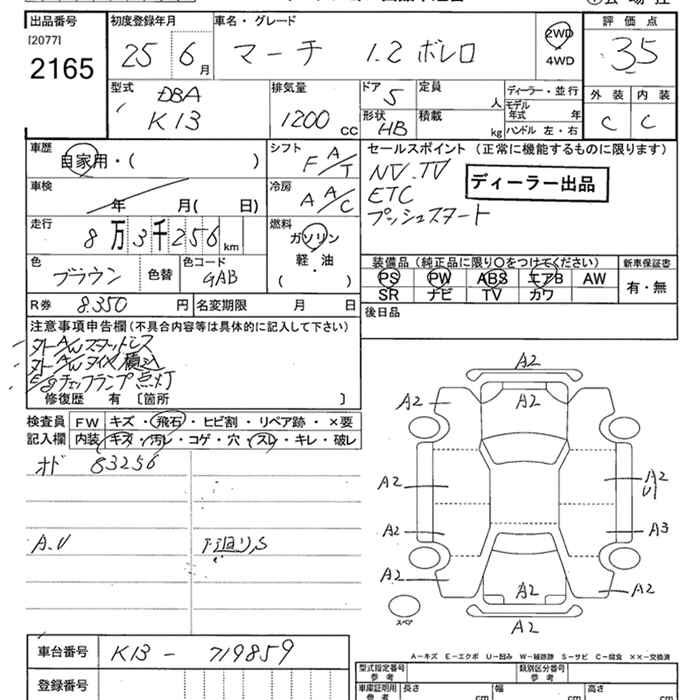 出品番号 初度登録年月 車名・グレード 評価点
[2077]
2165 25 6月 マーチ 1.2 ボレロ 2WD 4WD 3.5
型式 排気量 ドア 定員 ディーラー・並行 外装 内装
DBA K13 1200cc 5 人 モデル年式 年 C C
形状 HB 積載 kg ハンドル 左・右
車歴 シフト セールスポイント (正常に機能するものに限ります)
自家用・( ) F A/T NV.TV
ディーラー出品
車検 冷房 ETC
年 月( 日) A A/C プッシュスタート
走行 燃料
8万3千256km ガソリン
軽・油
( )
装備品(純正品に限り○をつけてください) 新車保証書
色 色替 色コード PS PW ABS エアB AW 有・無
ブラウン GAB SR ナビ TV カワ
R券 8.350円 名変期限 月 日 後日品
注意事項申告欄(不具合内容等は具体的に記入して下さい)
外A/Wスタッドレス
外A/Wタイヤ積込
E/gチェックランプ点灯
修復歴 有 [箇所 ]
検査員 FW キズ・飛石・ヒビ割・リペア跡・×要
記入欄 内装 キズ・汚レ・コゲ・穴・スレ・キレ・破レ
オド 83256
A.U 下廻りS
A2
A2 A2
A2 A2
U1
A2 A3
A2 A2 A2
A2
スペア
A-キズ E-エクボ U-凹み W-補修跡 S-サビ C-腐食 ××-交換済
車台番号 K13-719859
型式指定番号 参考 類別区分番号 参考
登録番号 車庫証明用 参考 長さ cm 幅 cm 高さ cm